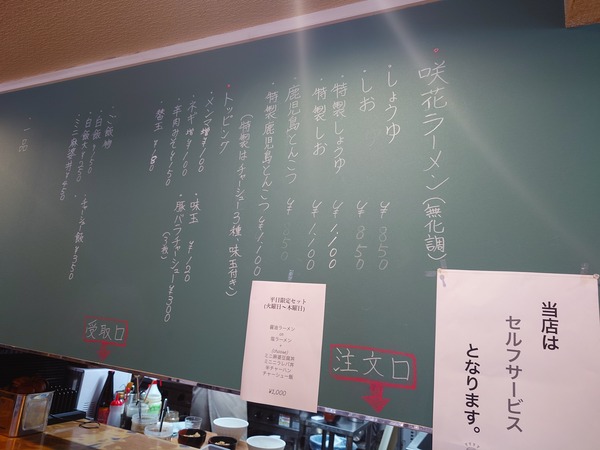 咲花ラーメン(無化調)
・しょうゆ ¥850
・しお ¥850
・特製しょうゆ ¥1,100
・特製しお ¥1,100
・鹿児島とんこつ ¥850
・特製鹿児島とんこつ ¥1,100
(特製はチャーシュー3種、味玉付き)
・トッピング
・メンマ増¥100
・ネギ増¥100
・辛肉みそ¥150
・替玉 ¥180
・味玉 ¥120
・豚バラチャーシュー¥300
(3枚)
・ご飯物
・白飯 ¥150
・白飯大¥250
・ミニ麻婆丼¥450
・チャーシュー飯 ¥350
・一品
受取口
注文口
平日限定セット
(火曜日〜木曜日)
醤油ラーメン
or
塩ラーメン
+
ミニ麻婆豆腐丼
ミニニラレバ丼
半チャーハン
チャーシュー飯
¥1,000
当店は
セルフサービス
となります。